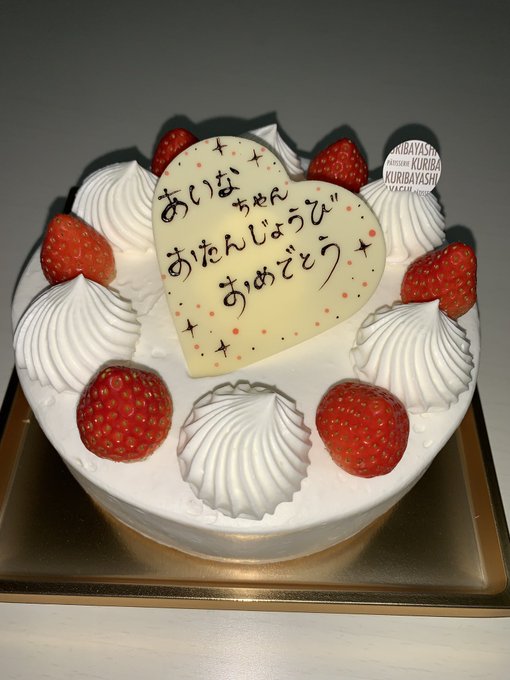 あいな
ちゃん
おたんじょうび
おめでとう
KURIBAYASHI
PATISSERIE KURIBA
KURIBAYASHI
YASHI